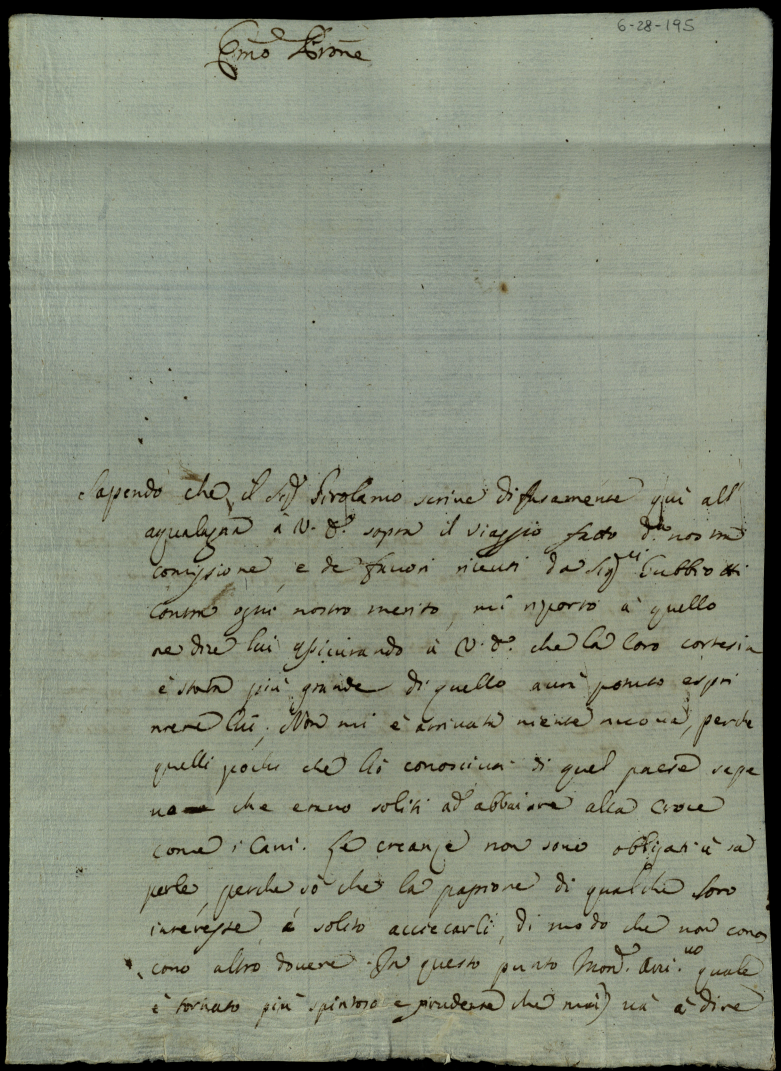 6-28-195
Emo Prone
Sapendo che il Sigr Girolamo scrive difusamente quì all'
à V. Sa. sopra il viaggio fatto da. nostra
comissione, e de favori riceuti da Sigri Gubbiotti
contra ogni nostro merito, mi riporto à quello
ne dirà lui assicurando à V. Sa. che la loro cortesia
è stata più grande di quello avrà potuto espri
mere lui. Non mi è arrivata niente nuova, perche
quelli pochi che hò conosciuti di quel paese sape
va che erano soliti ad abbaiare alla croce
come i Cani. Le creanze non sono obligati à sa
perle, perche sò che la passione di qualche loro
interesse è solito acciecarli, di modo che non conos
cono altro dovere. In questo punto Monsr. quale
è tornato più spiritoso e prudente che mai) và à dire